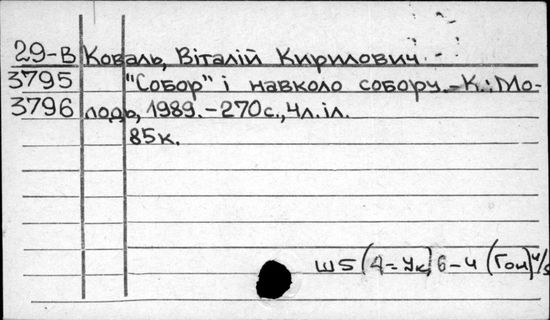 29-В Коваль, Віталій Кирилович.
3795 "Собор" і навколо собору.-К.: Мо-
3796 лодь, 1989.-270с., 4л.іл.
85к.
Ш5(4=Ук)6-4 (Гон)